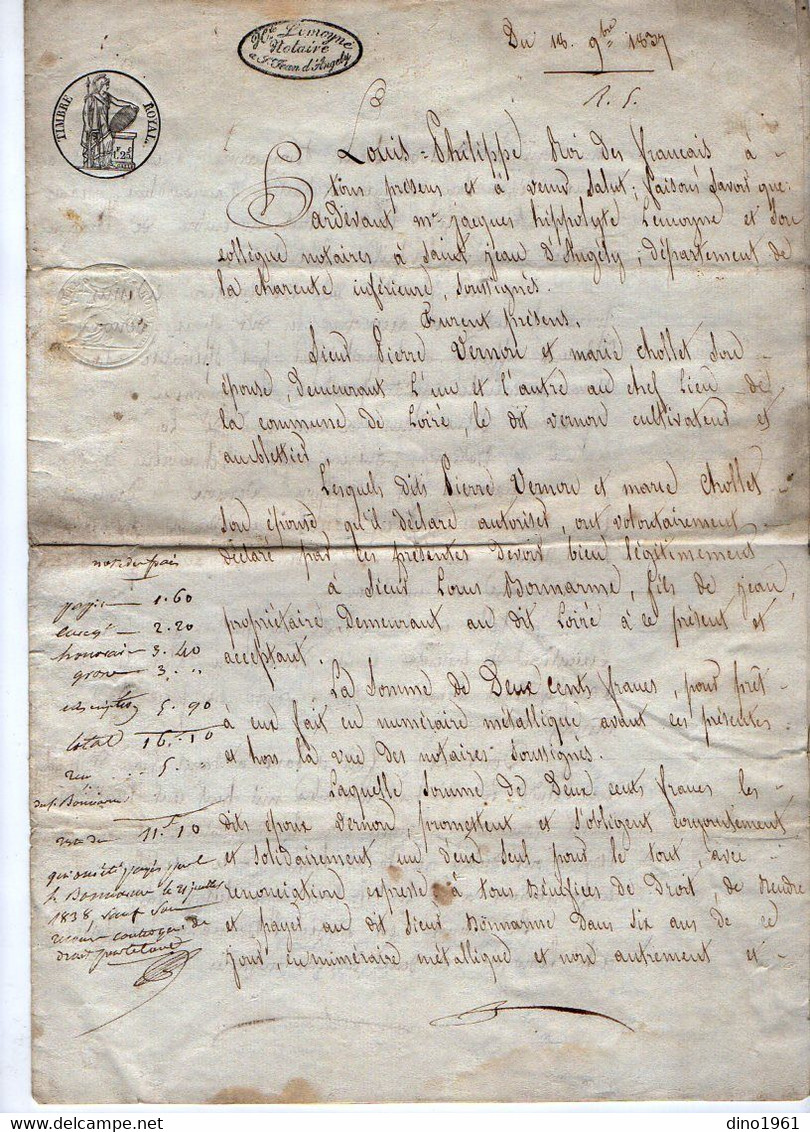 Hte Lemoyne
Notaire
à St Jean d'Angely
Du 18. 9bre 1837
TIMBRE ROYAL
1F.25C
Louis-Philippe Roi des français à
tous présens et à venir Salut; faisons Savoir que
Pardevant me jacques hippolyte Lemoyne et Son
collègue notaires à Saint jean d'Angély, département de
la charente inférieure, Soussignés.
Furent présens.
Sieur Pierre Vernon et marie chollet Son
épouse, demeurant l'un et l'autre au chef lieu de
la commune de Loiré, le dit vernon cultivateur et
Lesquels dits Pierre Vernon et marie chollet
Son épouse qu'il déclare autoriser, ont volontairement
déclaré par ces présentes devoir bien légitimement
à Sieur Louis Bonnarme, fils de jean,
propriétaire, demeurant au dit Loiré à ce présent et
acceptant.
La Somme de Deux cents francs, pour prêt
à eux fait en numéraire métallique avant ces présentes
et hors la vue des notaires Soussignés.
Laquelle Somme de Deux cents francs les
dits époux Vernon, promettent et s'obligent conjointement
et solidairement un d'eux seul pour le tout, avec
renonciation expresse à tous Bénéfices de Droit, de Rendre
et payer au dit Sieur Bonnarme Dans Six ans de ce
jour, en numéraire métallique et non autrement et
note des frais
papier 1.60
enreg 2.20
honorair 3.40
grosse 3. "
inscription 5.90
total 16.10
reçu 5. "
du s. Bonnarme
reste du 11.10
1838 sauf Son
recours contre